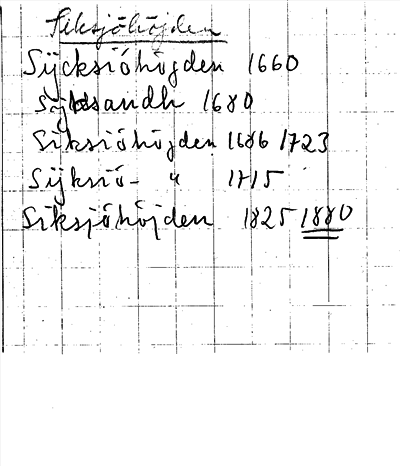 Siksjöhöjden
Sijcksiöhögden 1660
1680
Siksiöhöjden 1686 1723
Sijksiö- " 1715
Siksjöhöjden 1825 1880